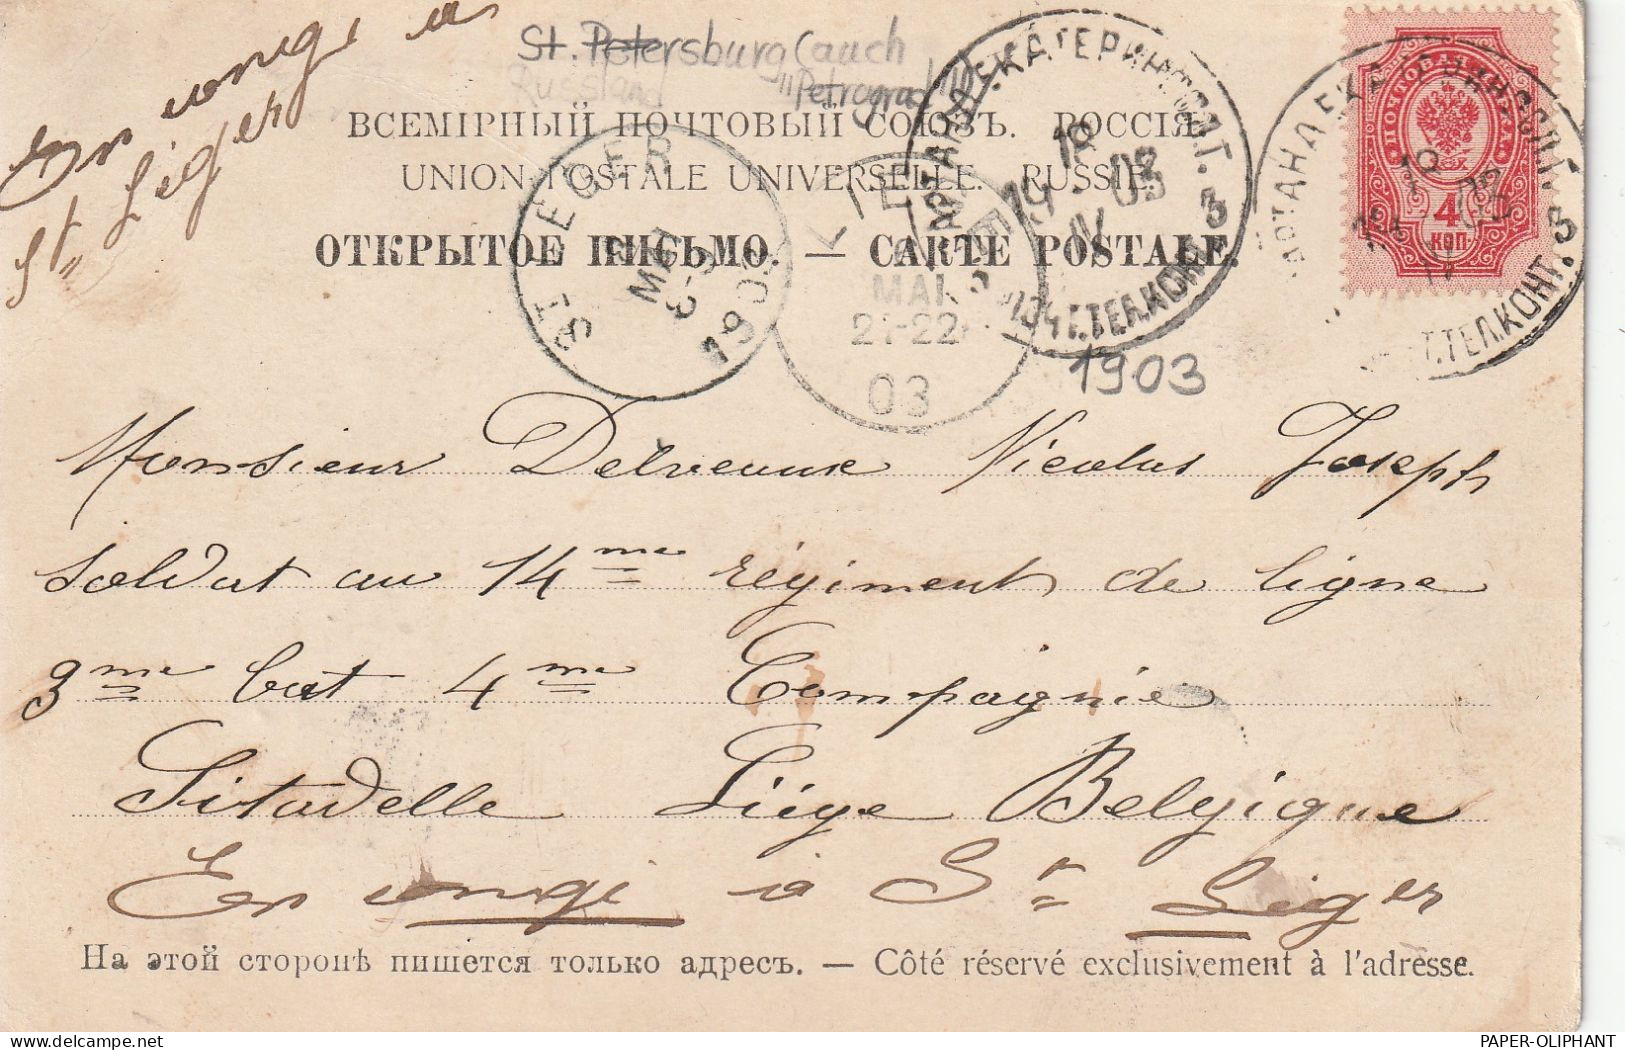 En congé à
St. Léger
St. Petersburg (auch
Russland "Petrograd")
ВСЕМІРНЫЙ ПОЧТОВЫЙ СОЮЗЪ. РОССІЯ.
UNION POSTALE UNIVERSELLE. RUSSIE.
ОТКРЫТОЕ ПИСЬМО. — CARTE POSTALE.
ST LEGER
MAI
1903
MAI
21-22
03
18
19 03
IV
3
ПОЧТ.ТЕЛ.КОНТ.
ПОЧТОВАЯ МАРКА
4
КОП
1903
Monsieur Delveaux Nicolas Joseph
soldat au 14me régiment de ligne
3me bat 4me Compaignie
Sitadelle Liége Belgique
En congé à St Léger
На этой сторонѣ пишется только адресъ. — Côté réservé exclusivement à l'adresse.
PAPER-OLIPHANT